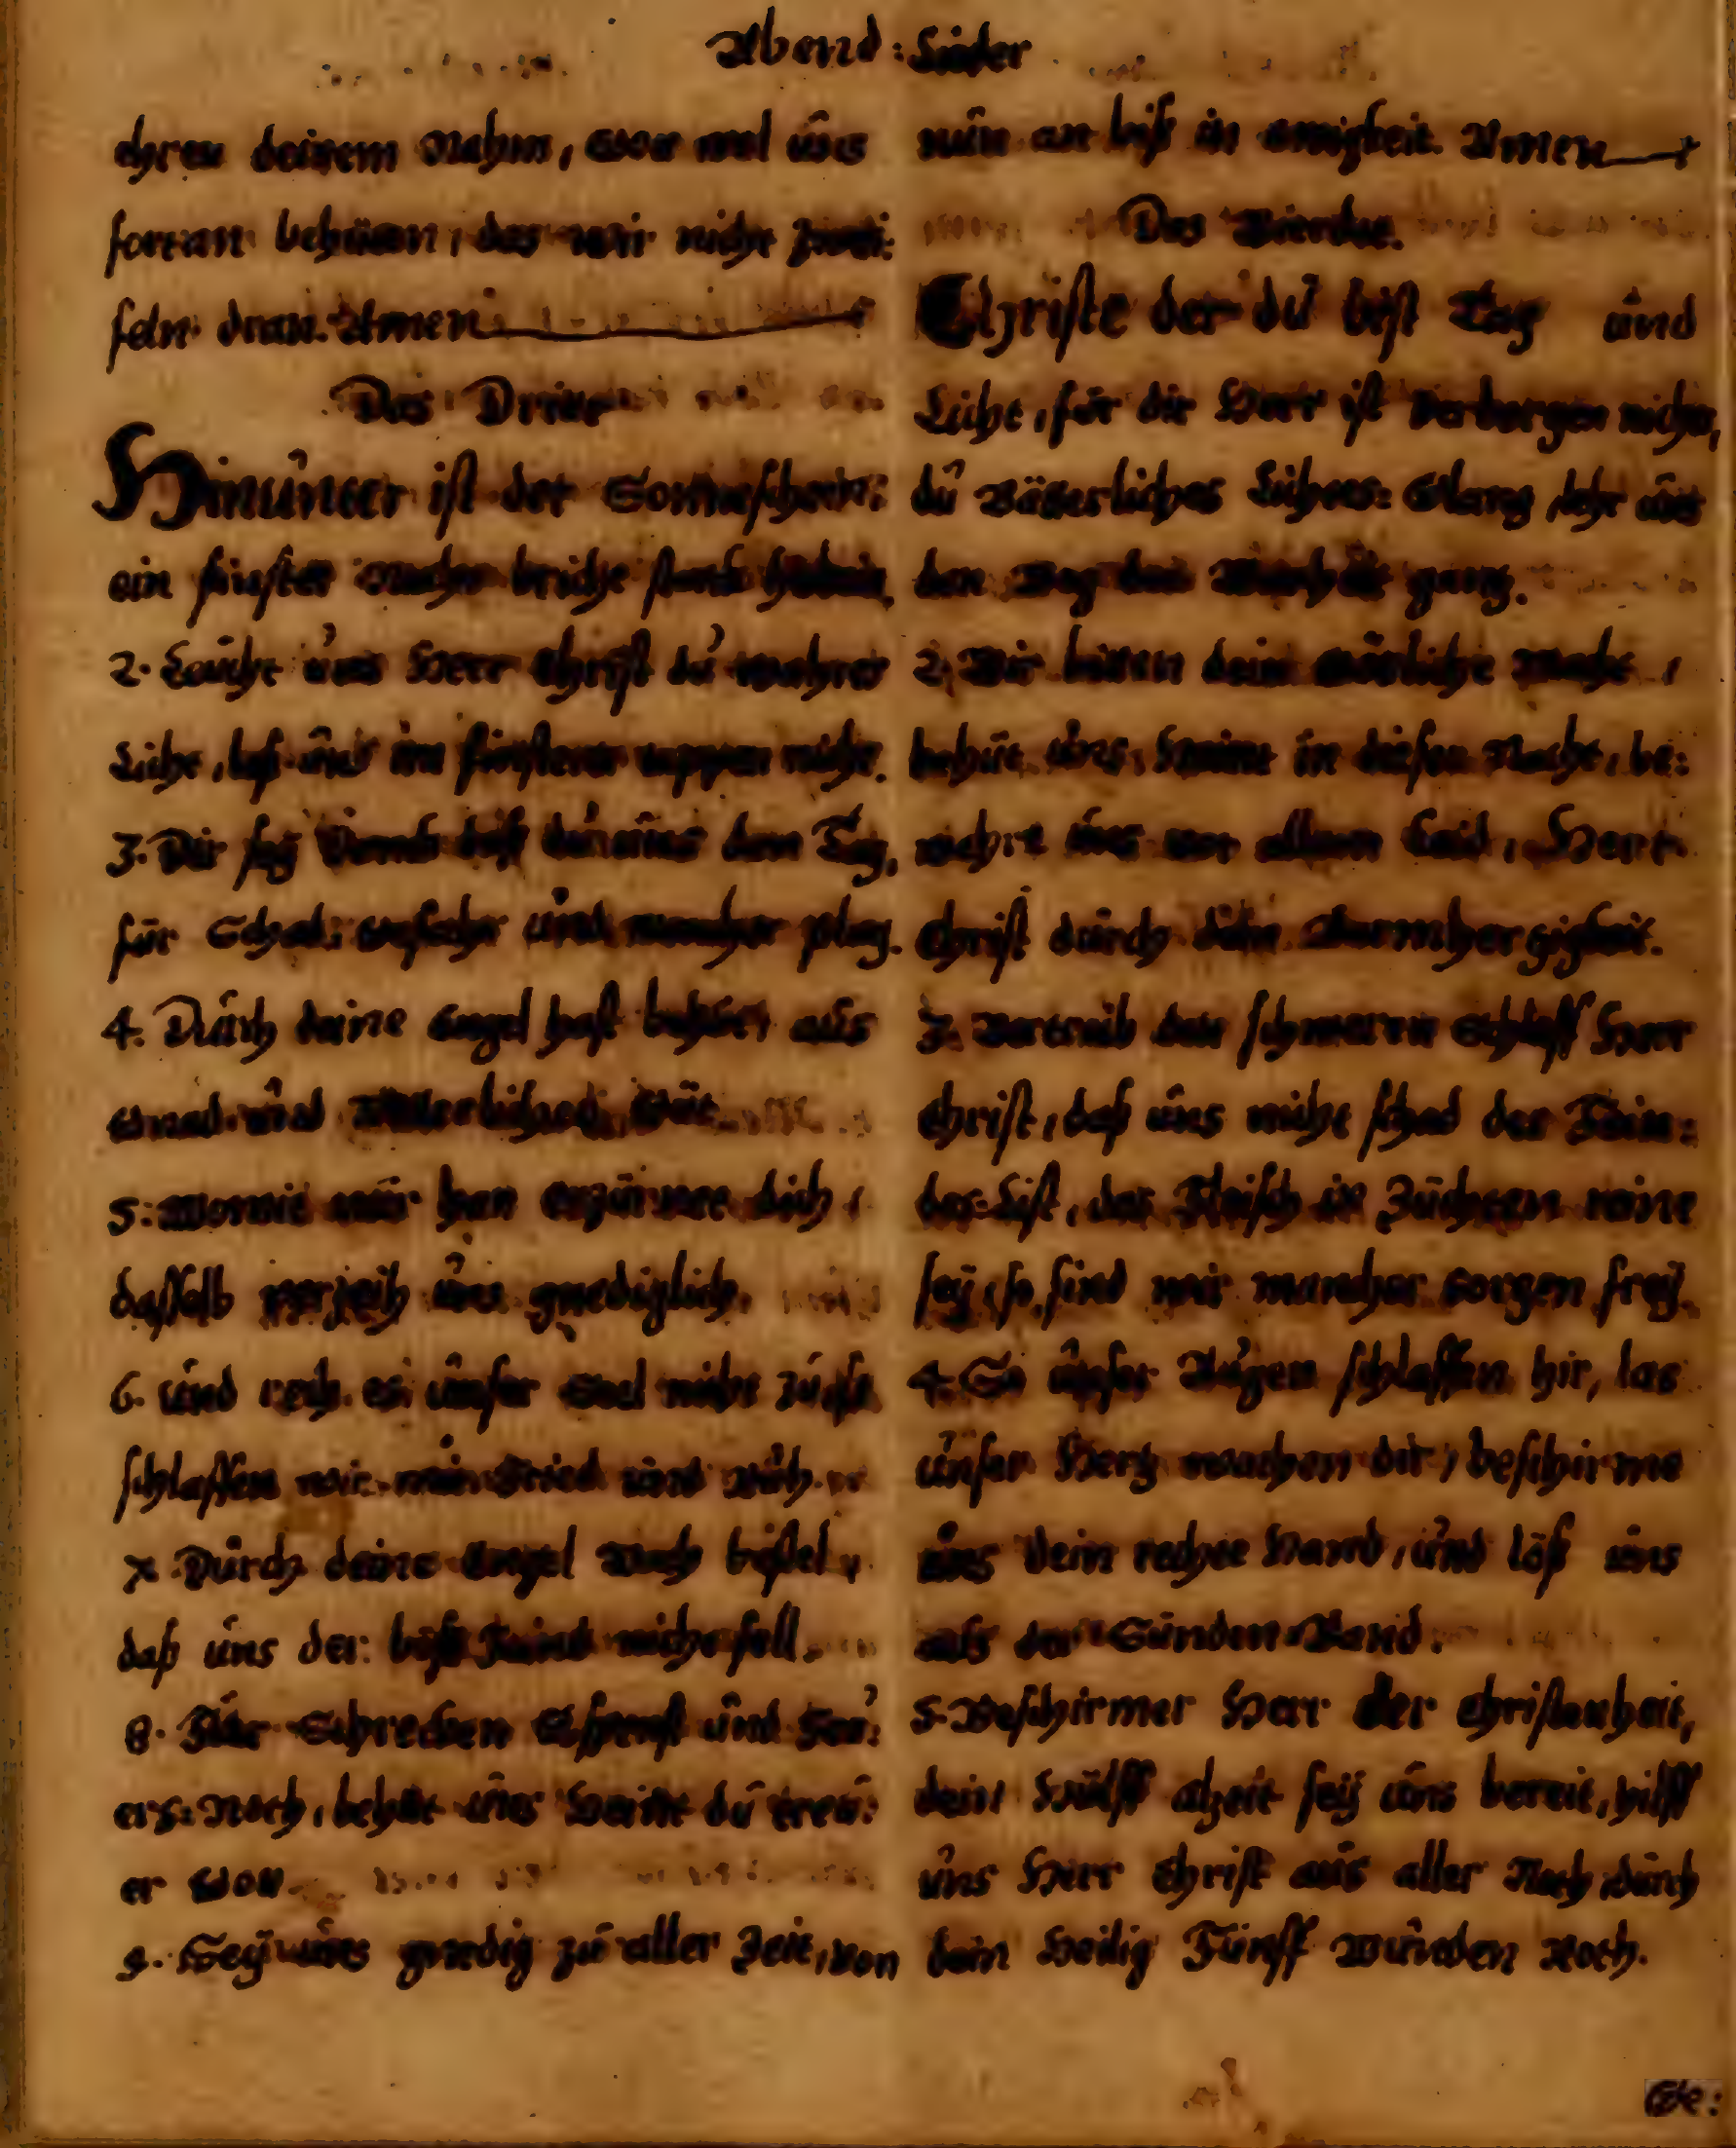 Abend: Lieder
ehren deinem Nahm, wol uns
fortan behüten, das wir nicht zwei:
feln dran. Amen
Das Dritte
Hinunter ist der Sonneschein:
ein finster Nacht bricht starck herein.
2. Leucht uns Herr Christ du wahres
Licht, laß uns im finstern tappen nicht.
3. Dir sey Danck daß du uns den Tag,
für Schad: und mancher plag.
4. Durch deine Engel hast behüt, aus
Gnad und Vätterlicher Güt
5. Womit wir han erzürnet dich,
dasselb verzeih uns gnediglich.
6. und rech es unser Seel nicht zu, so
schlaffen wir mit Fried und Ruh.
7. Durch deine Engel Wach bestel,
daß uns der böse Feind nicht fell.
8. Für Schrecken Gspenst und Feu:
ers: Noth, behüt uns Heint du treu:
er Gott
9. Sey uns gnedig zu aller Zeit, von
nun an biß in ewigkeit. Amen
Das Vierdte.
Christe der du bist Tag und
Licht, für dir Herr ist verborgen nichts,
du Vätterliches Lichtes: Glantz, lehr uns
den Weg der Warheit gantz.
2. Wir bitten dein Götliche Macht,
behüt uns, Heint in dieser Nacht, be:
wahre uns vor allem Leid, Herr
Christ durch dein Barmhertzigkeit.
3. Vertreib den schweren Schlaff Herr
Christ, daß uns nicht schad der Fein:
des: List, das Fleisch in Züchten reine
sey, so sind wir mancher sorgen frey.
4. So unser Augen schlaffen hir, las
unser Hertz wachen dir, beschirme
uns dein rechte Hand, und löß uns
aus der Sünden Band.
5. Beschirmer Herr der Christenheit,
dein Hülff alzeit sey uns bereit, hilff
uns Herr Christ aus aller Noth, durch
dein Heilig Fünff Wunden Roth.
Ge: